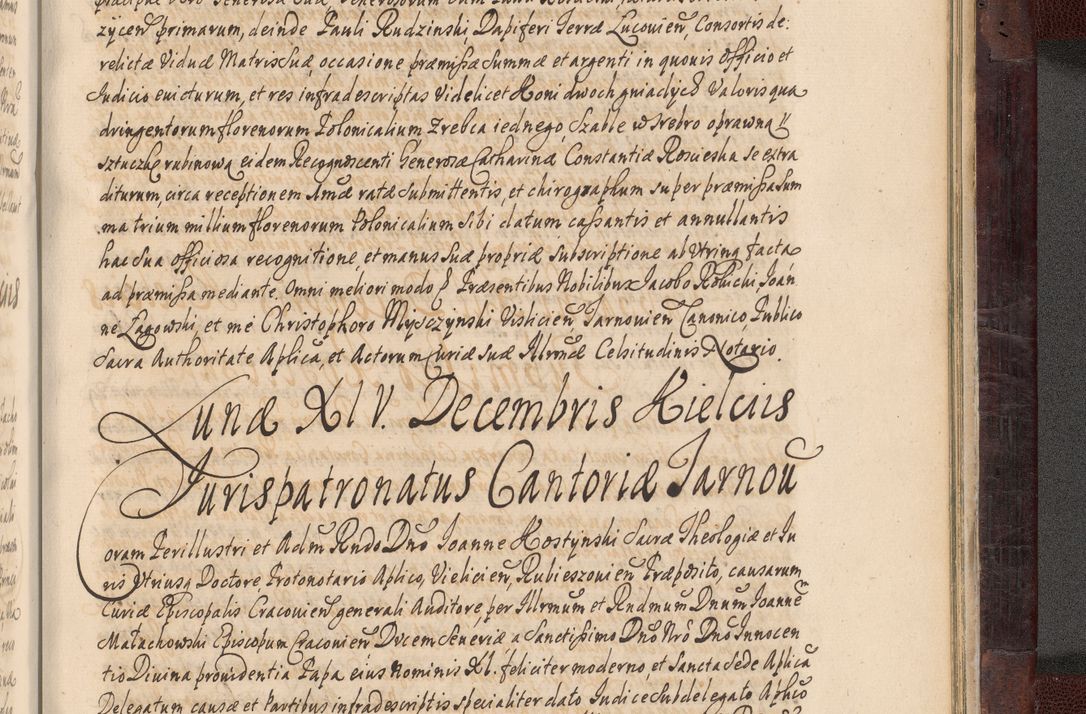 zyceñ primarum, deinde Pauli Rudzinski Dapiferi Terræ Lucovieñ, Consortis de:
relictæ Viduæ Matris suæ, occasione præmissæ summæ et argenti in quovis Officio et
Judicio evicturum, et res infradescriptas videlicet Koni dwoch gniadych Valoris qua
dringentorum florenorum Polonicalium Zrebca iednego, Szable w srebro oprawną
sztuczkę rubinową eidem Recognoscenti Generosæ Catharinæ Constantiæ Roscieska se extra
diturum, circa receptionem Amæ ratæ submittentis, et chirographum super præmissa sum
ma trium millium florenorum Polonicalium sibi datum cassantis et annullantis
hac sua officiosa recognitione, et manus suæ propriæ subscriptione ab utrinq facta
ad præmissa mediante. Omni meliori modo Præsentibus Nobilibus Jacobo Robicki Joan
ne Zagowski, et me Christophoro Mijsczynski Vislicieñ Tarnovieñ Canonico, Publico
Sacra Authoritate Aplica, et Actorum Curiæ suæ Illrmæ Celsitudinis Notario.
Lunæ XIV. Decembris Kielciis
Jurispatronatus Cantoriæ Tarnou
Coram Perillustri et Adm Rndo Dno Joanne Kostynski Sacræ Theologiæ et Ju
ris Utriusq Doctore Protonotario Aplico, Vielicieñ, Rubieszovieñ Præposito, causarum
Curiæ Episcopalis Cracovieñ generali Auditore, per Illrmum et Rndmum Dnum Joannem
Małachowski Episcopum Cracovieñ Ducem Severiæ a Sanctissimo Dno Nro Dno Innocen
tio Divina providentia Papa eius nominis XI. feliciter moderno, et Sancta Sede Aplica
Delegatum causæ et Partibus infradescriptis specialiter dato Judice Subdelegato Aplico